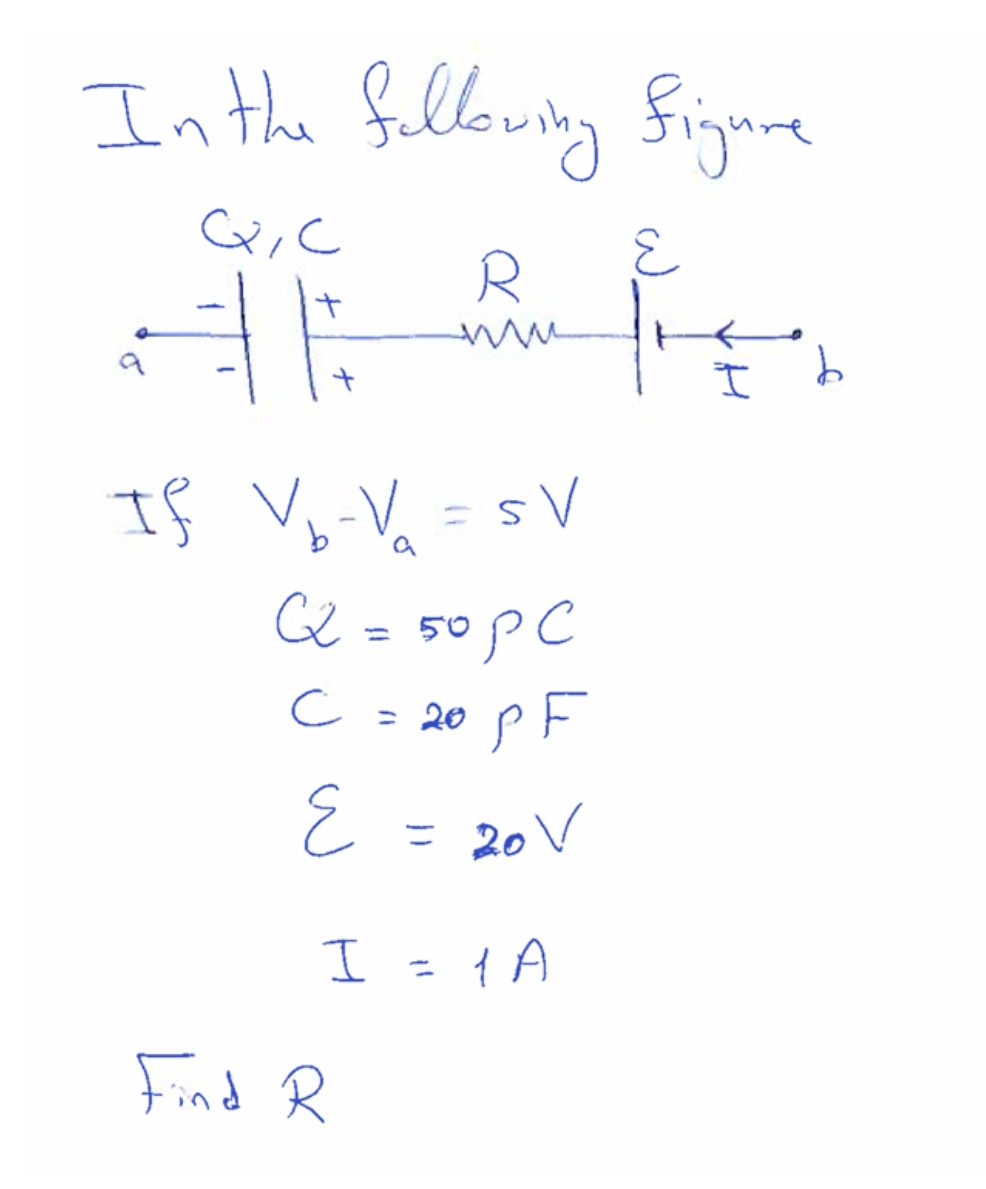 In the following figure
Q, C
R
ε
- +
a
- +
I
b
If Vb - Va = 5V
Q = 50 pC
C = 20 pF
ε = 20V
I = 1 A
Find R